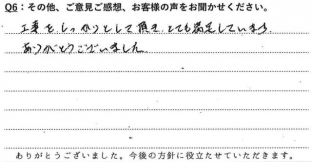 Q6:その他、ご意見ご感想、お客様の声をお聞かせください。
工事を、しっかりとして頂き、とても満足しています。
ありがとうございました。
ありがとうございました。今後の方針に役立たせていただきます。